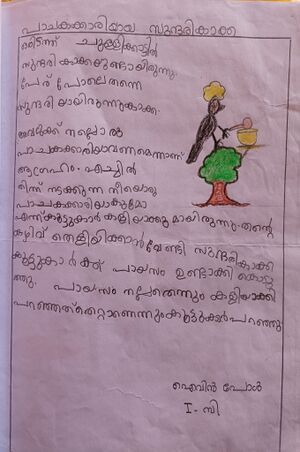 പാചകക്കാരിയായ സുന്ദരികാക്ക
ഒരിടത്ത് ചുള്ളിക്കാട്ടിൽ
സുന്ദരി കാക്കയുണ്ടായിരുന്നു.
പേര് പോലെതന്നെ
സുന്ദരിയായിരുന്നുകാക്ക.
അവൾക്ക് നല്ലൊരു
പാചകക്കാരിയാവണമെന്നാണ്
ആഗ്രഹം. എച്ചിൽ
തിന്ന് നടക്കുന്ന നീയൊരു
പാചകക്കാരിയാകുമോ
എന്ന്കൂട്ടുകാർ കളിയാക്കുമായിരുന്നു. തന്റെ
കഴിവ് തെളിയിക്കാൻവേണ്ടി സുന്ദരികാക്ക
കൂട്ടുകാർക്ക് പായസം ഉണ്ടാക്കി കൊടു
ത്തു. പായസം നല്ലതെന്നും കളിയാക്കി
പറഞ്ഞത്തെറ്റാണെന്നുംകൂട്ടുക്കാർപറഞ്ഞു
ഐവിൻ പോൾ
I - സി